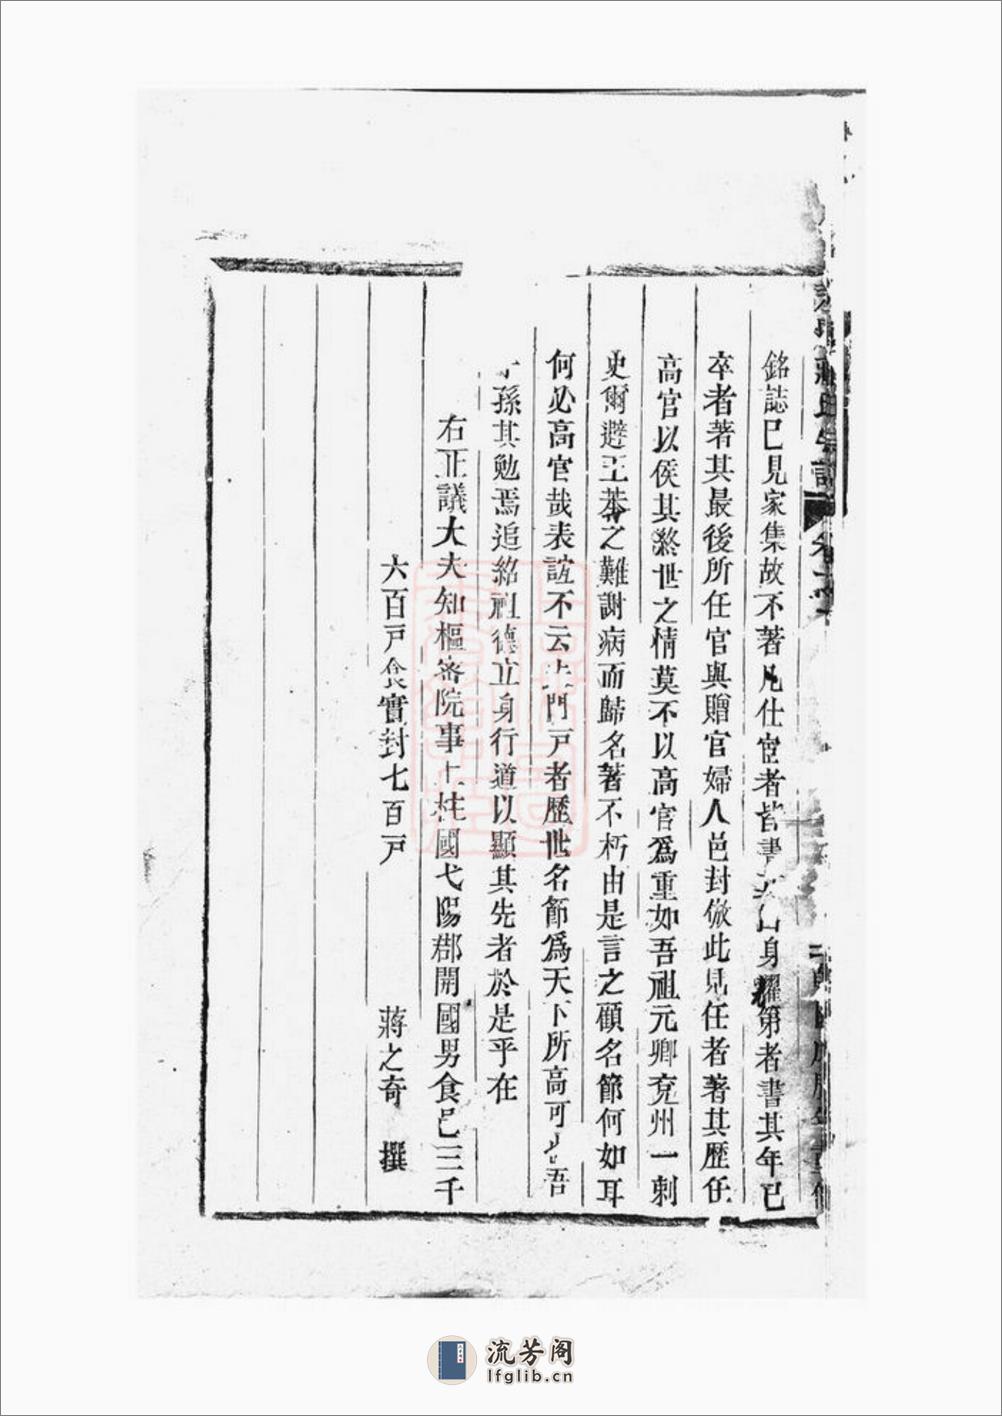 銘誌已見家集故不著凡仕宦者皆書其出身擢第者書其年已
卒者著其最後所任官與贈官婦人邑封倣此見任者著其歷任
高官以侯其終世之情莫不以高官為重如吾祖元卿兗州一刺
史爾避王莽之難謝病而歸名著不朽由是言之顧名節何如耳
何必高官哉表誼不云大門戸者歷世名節爲天下所高可吾
孫其勉焉追紹祖德立身行道以顯其先者於是乎在
右正議大夫知樞密院事上柱國弋陽郡開國男食邑三千
六百戸食實封七百戸 蔣之奇 撰
流芳阁
lfglib.cn